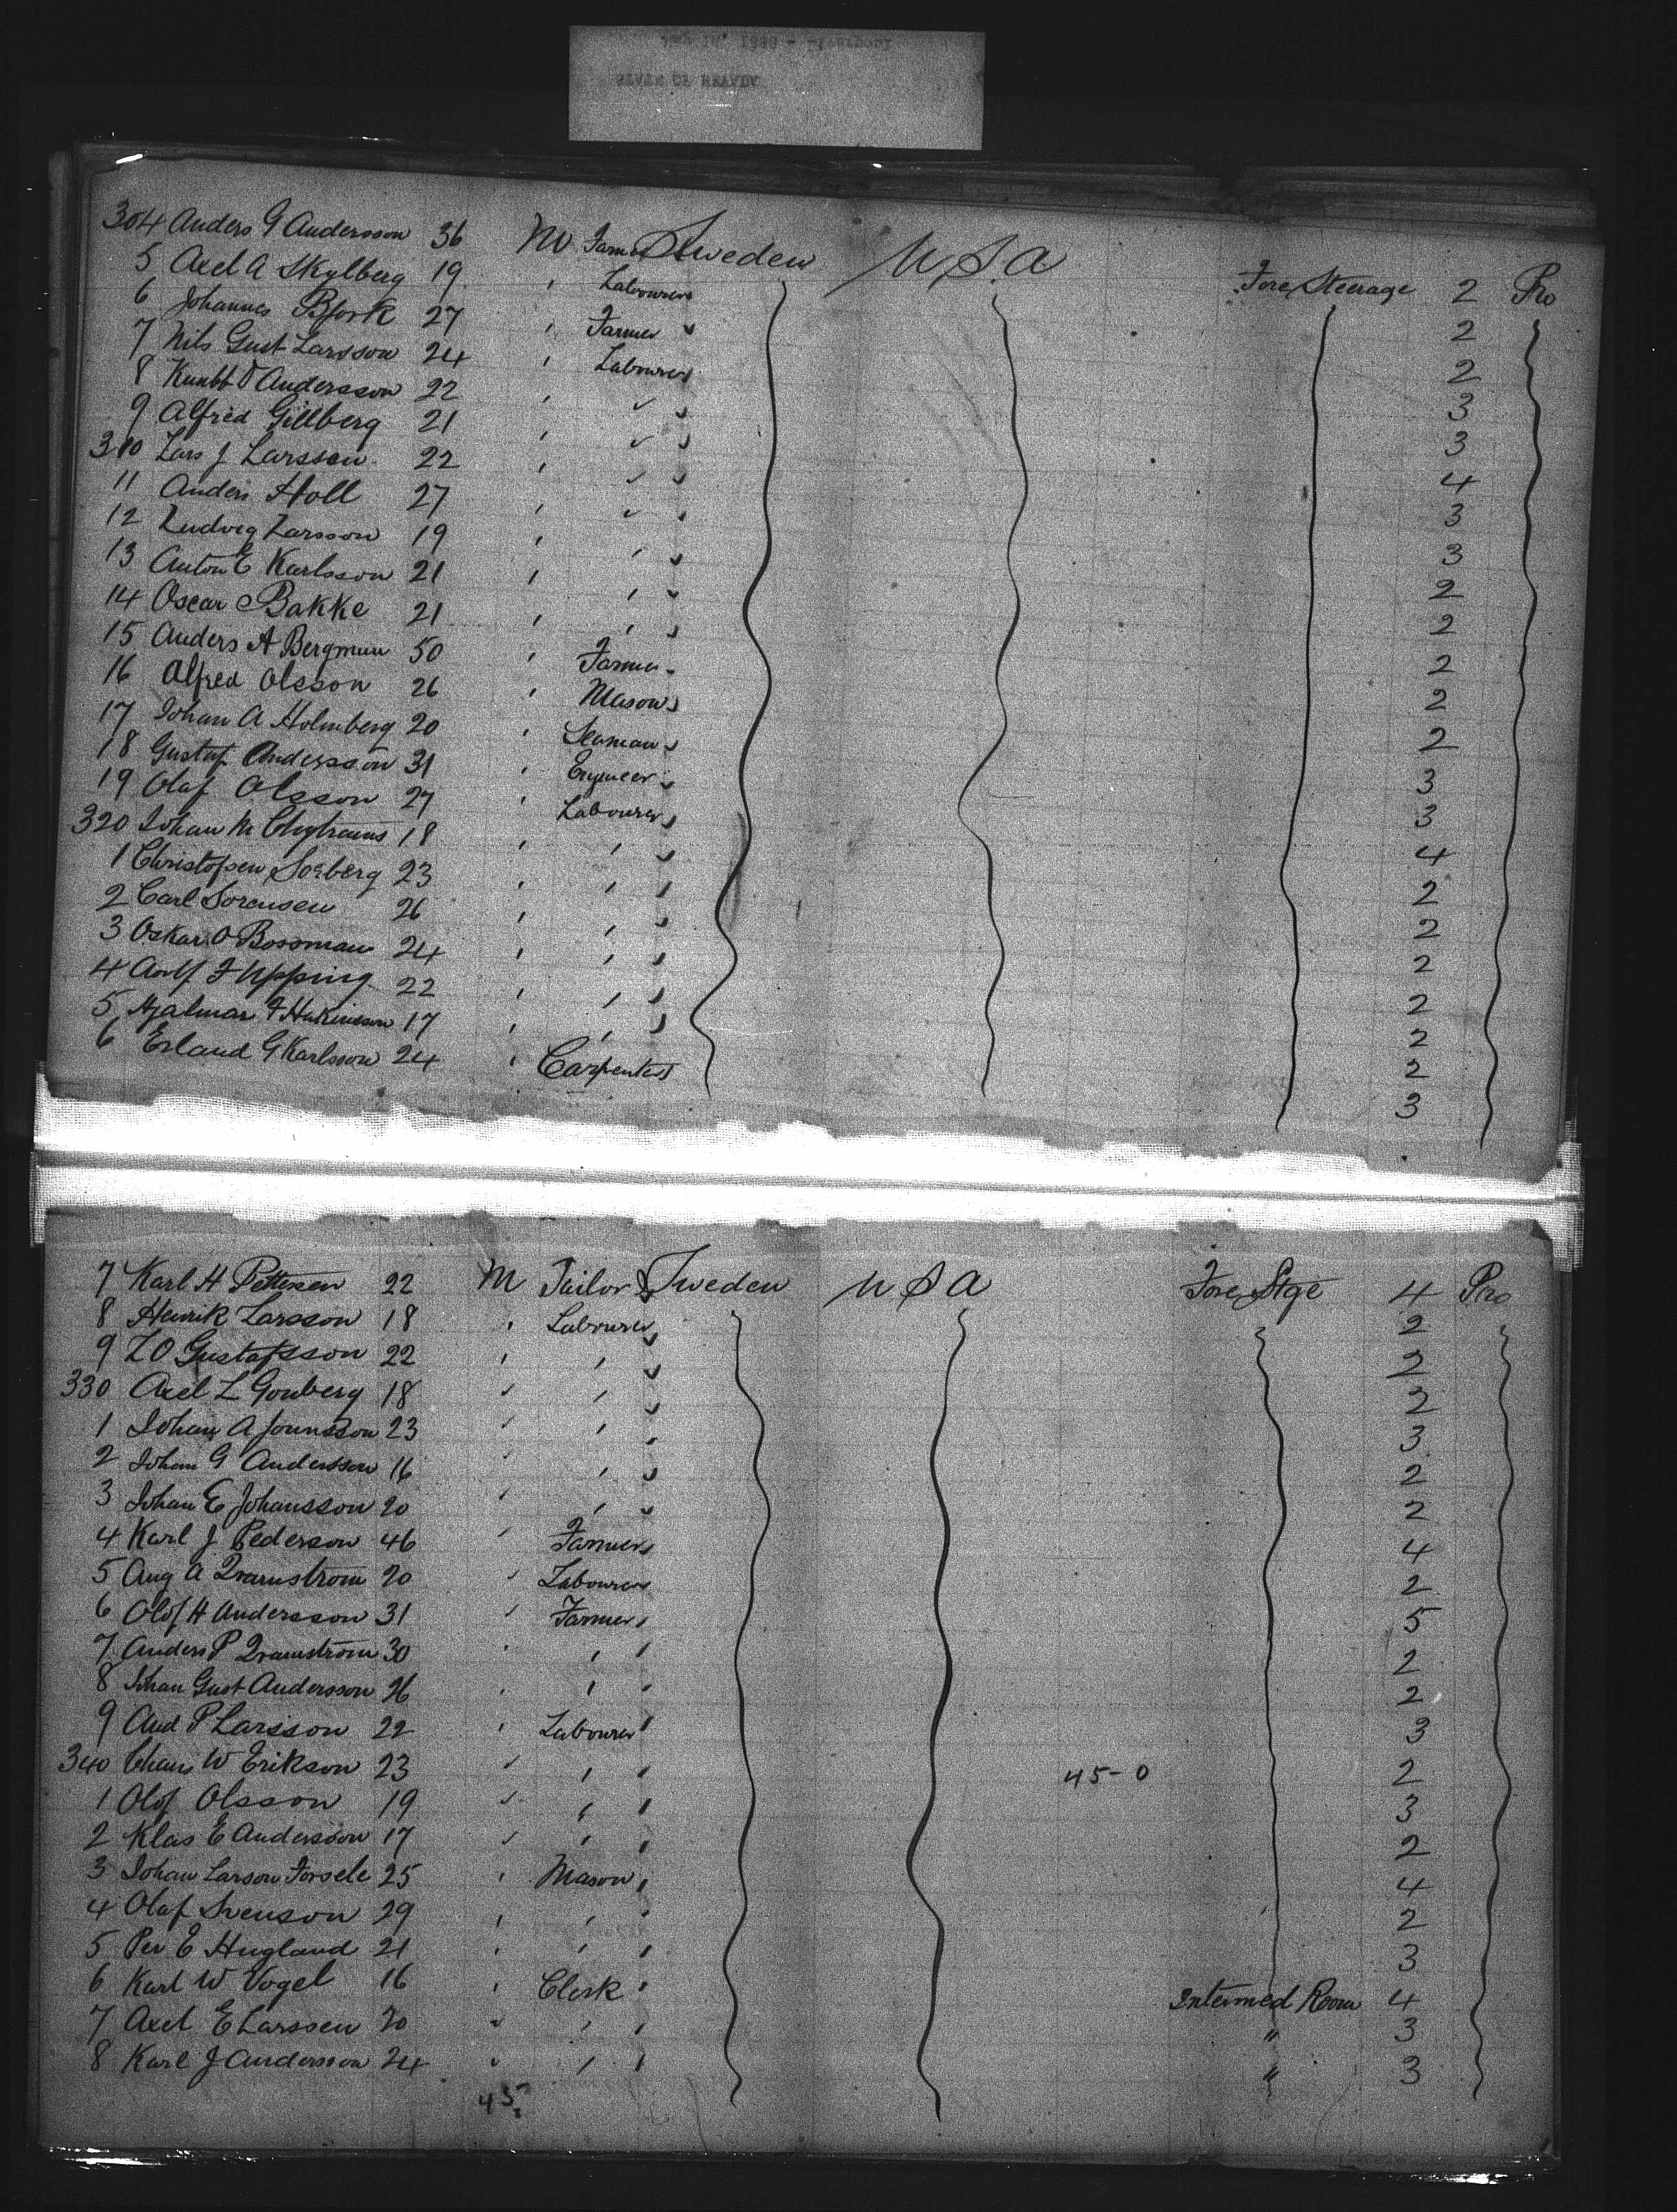 304 Anders G Andersson 36 M Farmer Sweden U S A Fore Steerage 2 Pro
5 Axel A Skylberg 19 " Labourer 2
6 Johannes Bjork 27 " Farmer " 2
7 Nils Gust Larsson 24 " Labourer 3
8 Andersson 22 " " " 3
9 Alfred Gillberg 21 " " " 4
310 Lars J Larsson 22 " " " 3
11 Anders Holl 27 " " " 3
12 Ludvig Larsson 19 " " " 2
13 Anton E Karlsson 21 " " " 2
14 Oscar Bakke 21 " " " 2
15 Anders A Bergman 50 " Farmer 2
16 Alfred Olsson 26 " Mason " 2
17 Johan A Holmberg 20 " Seaman " 3
18 Gustaf Andersson 31 " Engineer " 3
19 Olaf Olsson 27 " Labourer " 4
320 Johan M 18 " " " 2
1 Christofsen Sorberg 23 " " " 2
2 Carl Sorensen 26 " " " 2
3 Oskar O Bossman 24 " " " 2
4 Adolf F Upping 22 " " " 2
5 Hjalmar F 17 " " " 2
6 Erland G Karlsson 24 " Carpenter 3
7 Karl H Pettersen 22 M Tailor Sweden U S A Fore Stge 4 Pro
8 Henrik Larsson 18 " Labourer 2
9 L O Gustafsson 22 " " " 2
330 Axel L Gonberg 18 " " " 2
1 Johan A Jounsson 23 " " " 3
2 Johan G Andersson 16 " " " 2
3 Johan E Johansson 20 " " " 2
4 Karl J Pederson 46 " Farmer 4
5 Aug A Qvarnstrom 20 " Labourer 2
6 Olof H Andersson 31 " Farmer " 5
7 Anders P Qvarnstrom 30 " " " 2
8 Johan Gust Andersson 26 " " " 2
9 And P Larsson 22 " Labourer " 3
340 W Erikson 23 " " " 45-0 2
1 Olof Olsson 19 " " " 3
2 Klas E Andersson 17 " " " 2
3 Johan Larson Forsele 25 " Mason " 4
4 Olaf Svenson 29 " " " 2
5 Per E Hugland 21 " " " 3
6 Karl W Vogel 16 " Clerk " Intermed Room 4
7 Axel E Larssen 20 " " " " 3
8 Karl J Andersson 24 " " " " 3
45